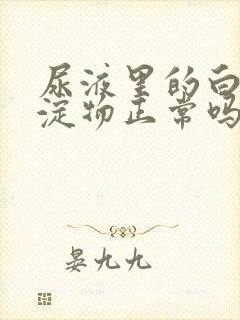 尿液里的白
淀物正常吗
晏九九